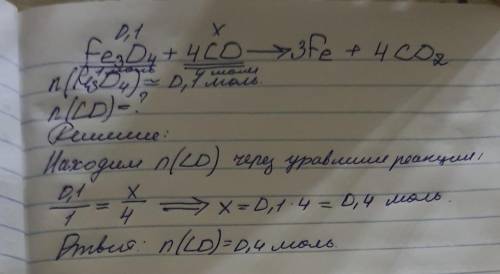 0,1 x
Fe₃O₄ + 4CO → 3Fe + 4CO₂
1 моль 4 моль
n(Fe₃O₄) = 0,1 моль.
n(CO) = ?
Решение:
Находим n(CO) через уравнение реакции;
0,1/1 = x/4 ⟹ x = 0,1 · 4 = 0,4 моль.
Ответ: n(CO) = 0,4 моль